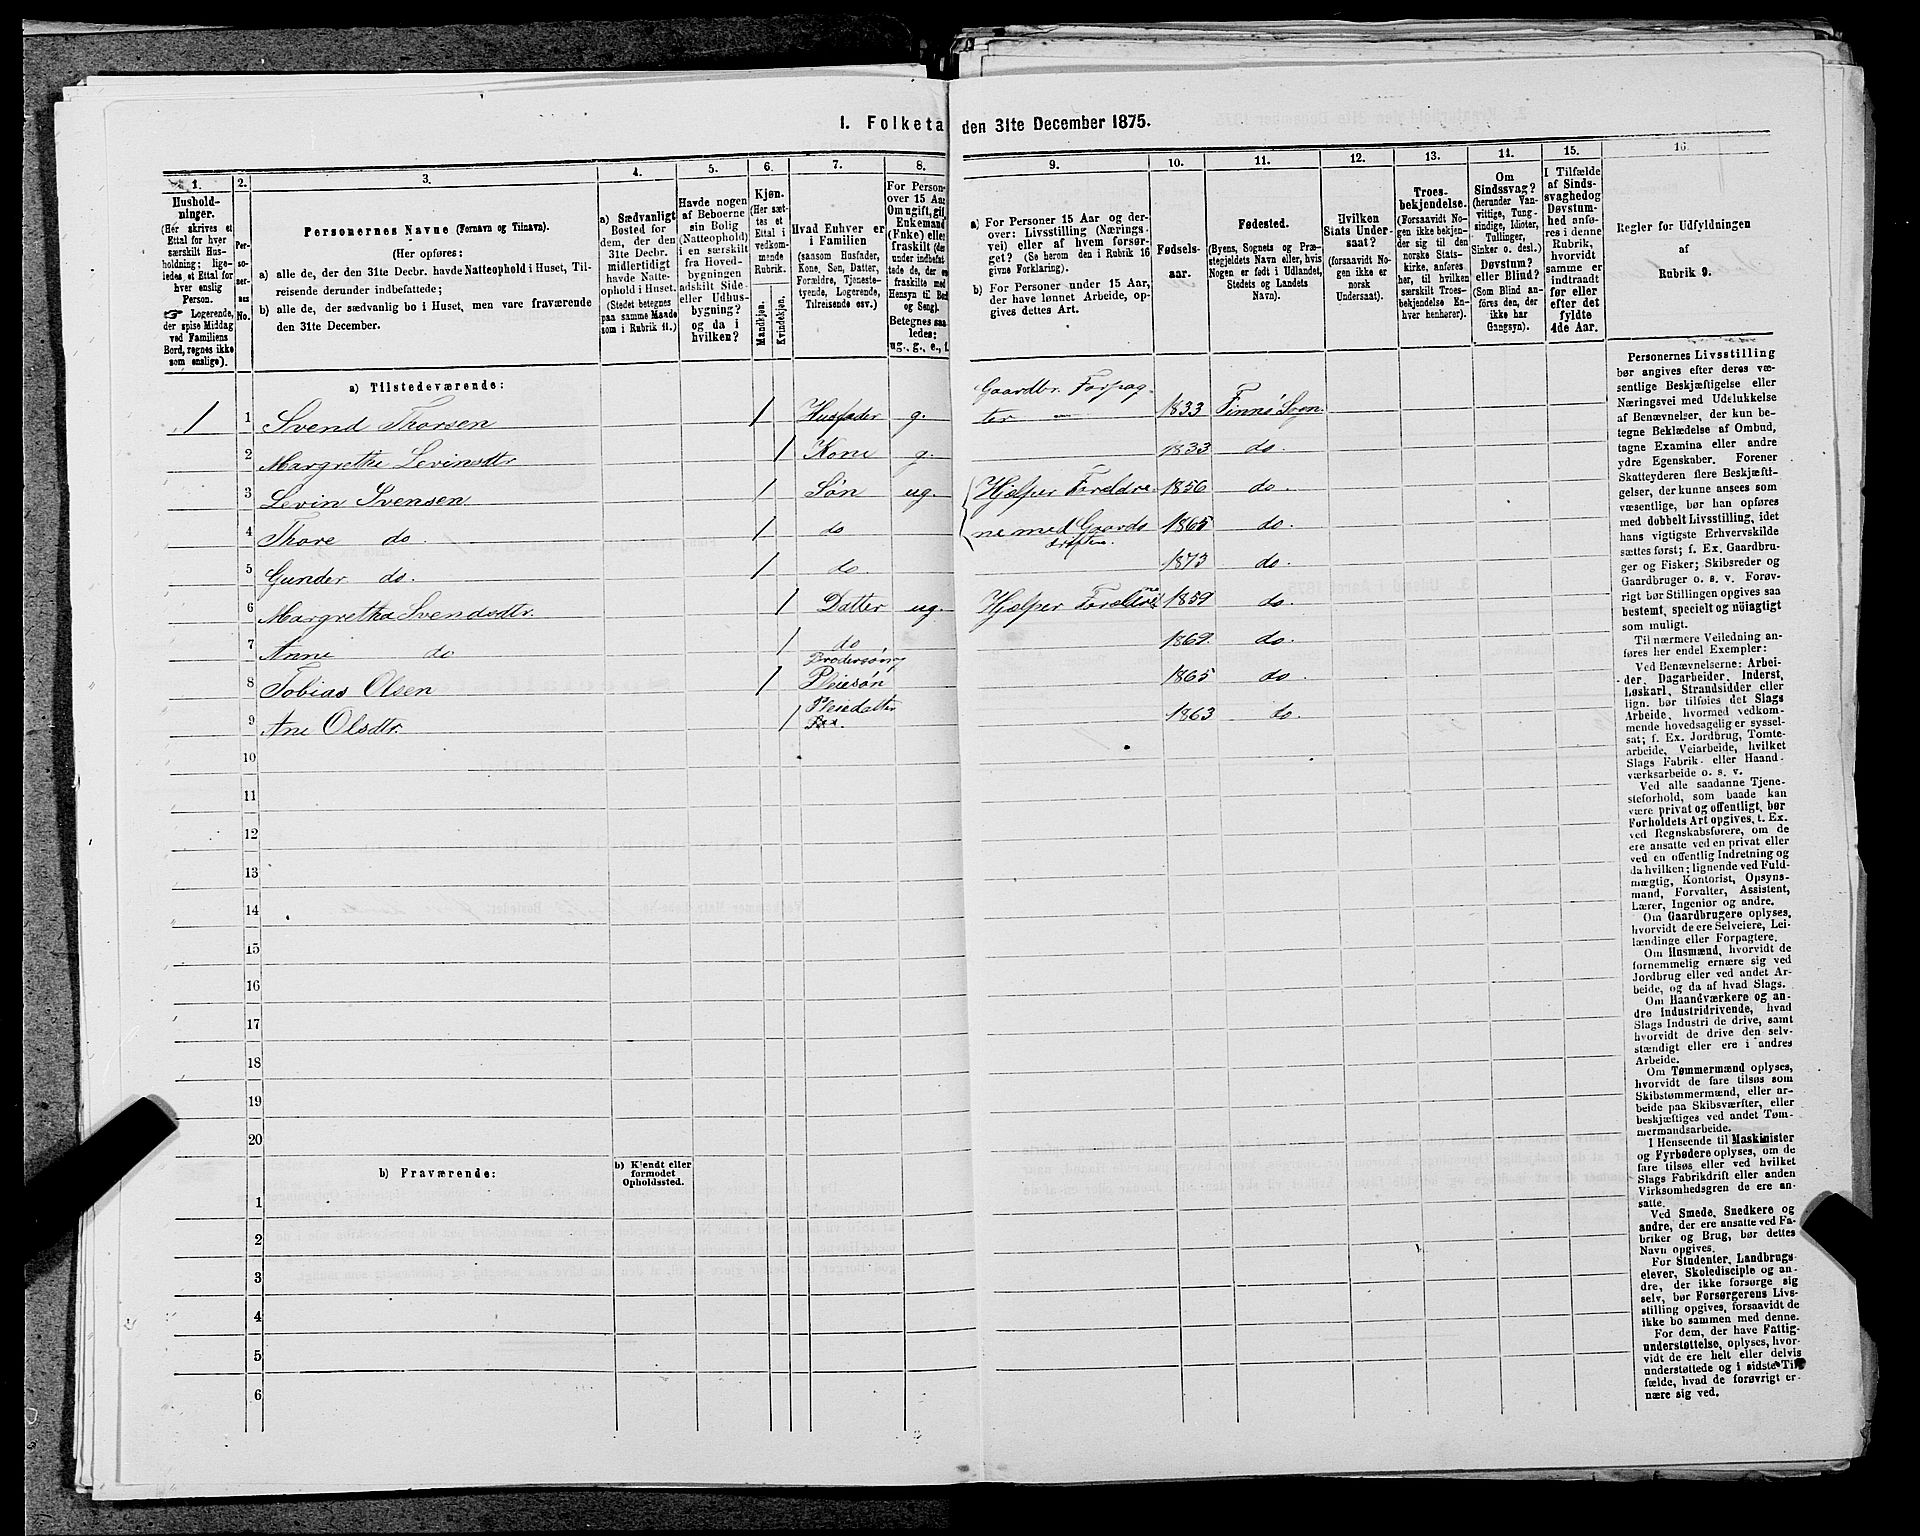 1. Folketa den 31te December 1875.
1. 2. 3. 4. 5. 6. 7. 8. 9. 10. 11. 12. 13. 14. 15. 16.
Hushold-
ninger.
(Hér skrives et
Ettal for hver
særskilt Hus-
holdning; lige-
ledes et Ettal for
hver enslig
Person.
☞ Logerende,
der spise Middag
ved Familiens
Bord, regnes ikke
som enslige).
Per-
so-
ner-
nes
No.
Personernes Navne (Fornavn og Tilnavn).
(Her opføres:
a) alle de, der den 31te Decbr. havde Natteophold i Huset, Til-
reisende derunder indbefattede;
b) alle de, der sædvanlig bo i Huset, men vare fraværende
den 31te December.
a) Sædvanligt
Bosted for
dem, der den
31te Decbr.
midlertidigt
havde Natte-
ophold i Huset.
(Stedet betegnes
paa samme Maade
som i Rubrik 11.)
Havde nogen
af Beboerne
sin Bolig
(Natteophold)
i en særskilt
fra Hoved-
bygningen
adskilt Side-
eller Udhus-
bygning?
og da i
hvilken?
Kjøn.
(Her sæt-
tes et
Ettal i
vedkom-
mende
Rubrik.
Mandkjøn.
Kvindekjøn.
Hvad Enhver er
i Familien
(saasom Husfader,
Kone, Søn, Datter,
Forældre, Tjeneste-
tyende, Logerende,
Tilreisende osv.)
For Person-
over 15 Aar
Om ugift, gif
Enkemand
(Enke) eller
fraskilt (de
under indbefat-
tede de, der ere
fraskilte med
Hensyn til Bord
og Seng).
Betegnes saa-
ledes:
ug., g., e., f.
a) For Personer 15 Aar og der-
over: Livsstilling (Nærings-
vei) eller af hvem forsør-
get? (Se herom den i Rubrik 16
givne Forklaring).
b) For Personer under 15 Aar,
der have lønnet Arbeide, op-
gives dettes Art.
Fødsels-
aar.
Fødested.
(Byens, Sognets og Præ-
stegjeldets Navn eller, hvis
Nogen er født i Udlandet,
Stedets og Landets
Navn).
Hvilken
Stats Under-
saat?
(forsaavidt No-
gen ikke er
norsk
Undersaat).
Troes-
bekjendelse.
(Forsaavidt No-
gen ikke bekjen-
der sig til den
norske Stats-
kirke, anføres
her, til hvilken
særskilt Troes-
bekjendelse En-
hver henhører).
Om
Sindssvag?
(herunder Van-
vittige, Tung-
sindige, Idioter,
Tullinger,
Sinker o. desl.)
Døvstum?
eller Blind?
(Som Blind an-
føres den, der
ikke har
Gangsyn).
I Tilfælde
af Sinds-
svaghed og
Døvstum-
hed anfø-
res i denne
Rubrik,
hvorvidt
samme er
indtraadt
før eller
efter det
fyldte
4de Aar.
Regler for Udfyldningen
af
Rubrik 9.
a) Tilstedeværende:
Gaardbr. Forpag-
1 1 Svend Thorsen 1 Husfader g. ter 1833 Finnø Sogn.
2 Margrethe Levinsdtr 1 Kone g. 1833 do.
3 Levin Svensen 1 Søn ug. Hjælper Forældre- 1856 do.
4 Thore do. 1 do ne med Gaards 1865 do.
driften.
5 Gunder do. 1 do. 1873 do.
6 Margretha Svendsdtr. 1 Datter ug. Hjælper Forældrene 1859 do.
7 Anne do 1 do 1869. do.
Brodersøn
8 Tobias Olsen 1 Pleiesøn 1865 do.
Pleiedatter
9 Ane Olsdtr. 1 1863 do.
10
11
12
13
14
15
16
17
18
19
20
b) Fraværende:
b) Kjendt eller
formodet
Opholdssted.
1
2
3
4
5
6
Personernes Livsstilling
bør angives efter deres væ-
sentlige Beskjæftigelse eller
Næringsvei med Udelukkelse
af Benævnelser, der kun be-
tegne Beklædelse af Ombud,
tagne Examina eller andre
ydre Egenskaber. Forener
Skatteyderen flere Beskjæfti-
gelser, der kunne ansees som
væsentlige, bør han opføres
med dobbelt Livsstilling, idet
hans vigtigste Erhvervskilde
sættes først; f. Ex. Gaardbru-
ger og Fisker; Skibsreder og
Gaardbruger o. s. v. Forøv-
rigt bør Stillingen opgives saa
bestemt, specielt og nöiagtigt
som muligt.
Til nærmere Veiledning an-
føres her endel Exempler:
Ved Benævnelserne: Arbei-
der, Dagarbeider, Inderst,
Løskarl, Strandsidder eller
lign. bør tilføies det Slags
Arbeide, hvormed vedkom-
mende hovedsagelig er syssel-
sat; f. Ex. Jordbrug, Tomte-
arbeide, Veiarbeide, hvilket
Slags Fabrik- eller Haand-
værksarbeide o. s. v.
Ved alle saadanne Tjene-
steforhold, som baade kan
være privat og offentligt, bør
Forholdets Art opgives, f. Ex.
ved Regnskabsførere, om de
ere ansatte ved en privat eller
ved en offentlig Indretning og
da hvilken; lignende ved Fuld-
mægtig, Kontorist, Opsyns-
mand, Forvalter, Assistent,
Lærer, Ingeniør og andre.
Om Gaardbrugere oplyses,
hvorvidt de ere Selveiere, Lei-
lændinge eller Forpagtere.
Om Husmænd, hvorvidt de
fornemmelig ernære sig ved
Jordbrug eller ved andet Ar-
beide, og da af hvad Slags.
Om Haandværkere og an-
dre Industridrivende, hvad
Slags Industri de drive, samt
hvorvidt de drive den selv-
stændigt eller ere i andres
Arbeide.
Om Tømmermænd oplyses,
hvorvidt de fare tilsøs som
Skibstømmermænd, eller ar-
beide paa Skibsværfter, eller
beskjæftiges ved andet Tøm-
mermandsarbeide.
I Henseende til Maskinister
og Fyrbødere oplyses, om de
fare tilsøs eller ved hvilket
Slags Fabrikdrift eller anden
Virksomhedsgren de ere an-
satte.
Ved Smede, Snedkere og
andre, der ere ansatte ved Fa-
briker og Brug, bør dettes
Navn opgives.
For Studenter, Landbrugs-
elever, Skoledisciple og an-
dre, der ikke forsørge sig
selv, bør Forsørgerens Livs-
stilling opgives, forsaavidt de
ikke bo sammen med denne.
For dem, der have Fattig-
understøttelse, oplyses, hvor-
vidt de ere helt eller delvis
understøttede og i sidste Til-
fælde, hvad de forøvrigt er-
nære sig ved.